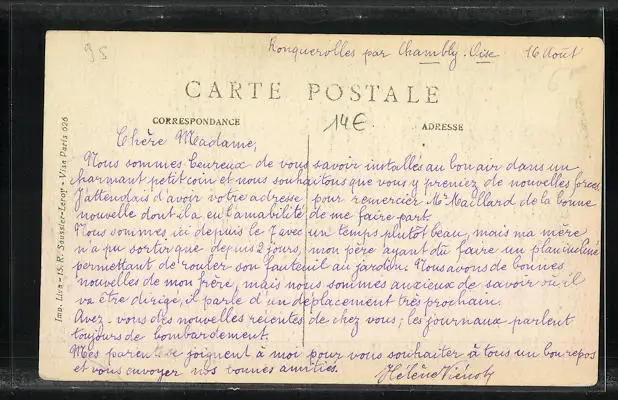 95
Ronquerolles par Chambly. Oise 16 Août
CARTE POSTALE
CORRESPONDANCE
14€
ADRESSE
Chère Madame,
Nous sommes heureux de vous savoir installés au bon air dans un
charmant petit coin et nous souhaitons que vous y preniez de nouvelles forces.
J'attendais d'avoir votre adresse pour remercier Mr Maillard de la bonne
nouvelle dont il a eu l'amabilité de me faire part.
Nous sommes ici depuis le 7 avec un temps plutôt beau, mais ma mère
n'a pu sortir que depuis 2 jours, mon père ayant dû faire un plan incliné
permettant de rouler son fauteuil au jardin. Nous avons de bonnes
nouvelles de mon frère, mais nous sommes anxieux de savoir où il
va être dirigé, il parle d'un déplacement très prochain.
Avez-vous des nouvelles récentes de chez vous; les journaux parlent
toujours de bombardement.
Mes parents se joignent à moi pour vous souhaiter à tous un bon repos
et vous envoyer nos bonnes amitiés.
Hélène Viénot
Imp. Liva - IS. R. - Visa Paris 626